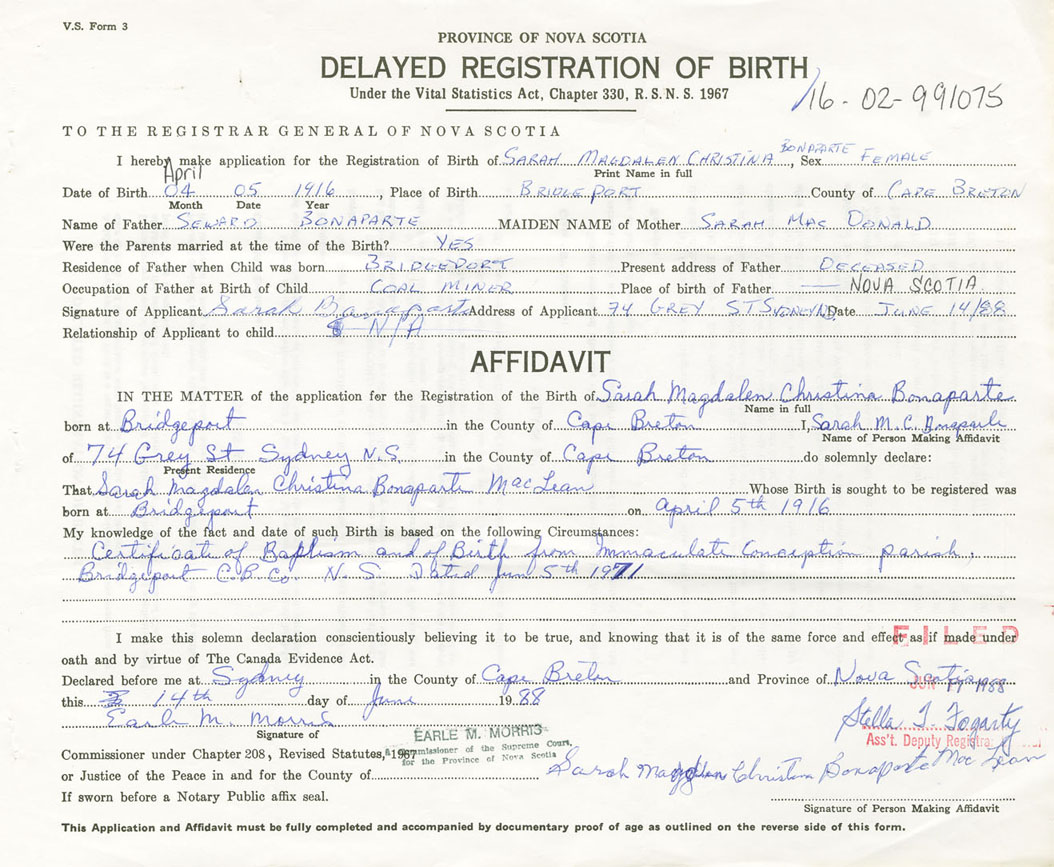 V.S. Form 3
PROVINCE OF NOVA SCOTIA
DELAYED REGISTRATION OF BIRTH
Under the Vital Statistics Act, Chapter 330, R.S.N.S. 1967
16-02-991075
TO THE REGISTRAR GENERAL OF NOVA SCOTIA
I hereby make application for the Registration of Birth of SARAH MAGDALEN CHRISTINA BONAPARTE, Sex FEMALE
Print Name in full
April
Date of Birth 04 05 1916, Place of Birth BRIDGEPORT County of CAPE BRETON
Month Date Year
Name of Father SEWARD BONAPARTE MAIDEN NAME of Mother SARAH MAC DONALD
Were the Parents married at the time of the Birth? YES
Residence of Father when Child was born BRIDGEPORT Present address of Father DECEASED
Occupation of Father at Birth of Child COAL MINER Place of birth of Father NOVA SCOTIA
Signature of Applicant Sarah Bonaparte Address of Applicant 74 GREY ST SYDNEY Date JUNE 14/88
Relationship of Applicant to child N/A
AFFIDAVIT
IN THE MATTER of the application for the Registration of the Birth of Sarah Magdalen Christina Bonaparte
Name in full
born at Bridgeport in the County of Cape Breton I, Sarah M.C. Bonaparte
Name of Person Making Affidavit
of 74 Grey St Sydney N.S. in the County of Cape Breton do solemnly declare:
Present Residence
That Sarah Magdalen Christina Bonaparte MacLean Whose Birth is sought to be registered was
born at Bridgeport on April 5th 1916
My knowledge of the fact and date of such Birth is based on the following Circumstances:
Certificate of Baptism and of Birth from Immaculate Conception parish,
Bridgeport C.B. Co. N.S. Dated Jun 5th 1971
I make this solemn declaration conscientiously believing it to be true, and knowing that it is of the same force and effect as if made under
FILED
oath and by virtue of The Canada Evidence Act.
Declared before me at Sydney in the County of Cape Breton and Province of Nova Scotia
JUN 17 1988
this 14th day of June 1988
Earle M. Morris
Stella T. Fogarty
Signature of
EARLE M. MORRIS
Ass't. Deputy Registrar
Commissioner under Chapter 208, Revised Statutes, 1967
A Commissioner of the Supreme Court,
for the Province of Nova Scotia
or Justice of the Peace in and for the County of
Sarah Magdalen Christina Bonaparte Mac Lean
If sworn before a Notary Public affix seal.
Signature of Person Making Affidavit
This Application and Affidavit must be fully completed and accompanied by documentary proof of age as outlined on the reverse side of this form.